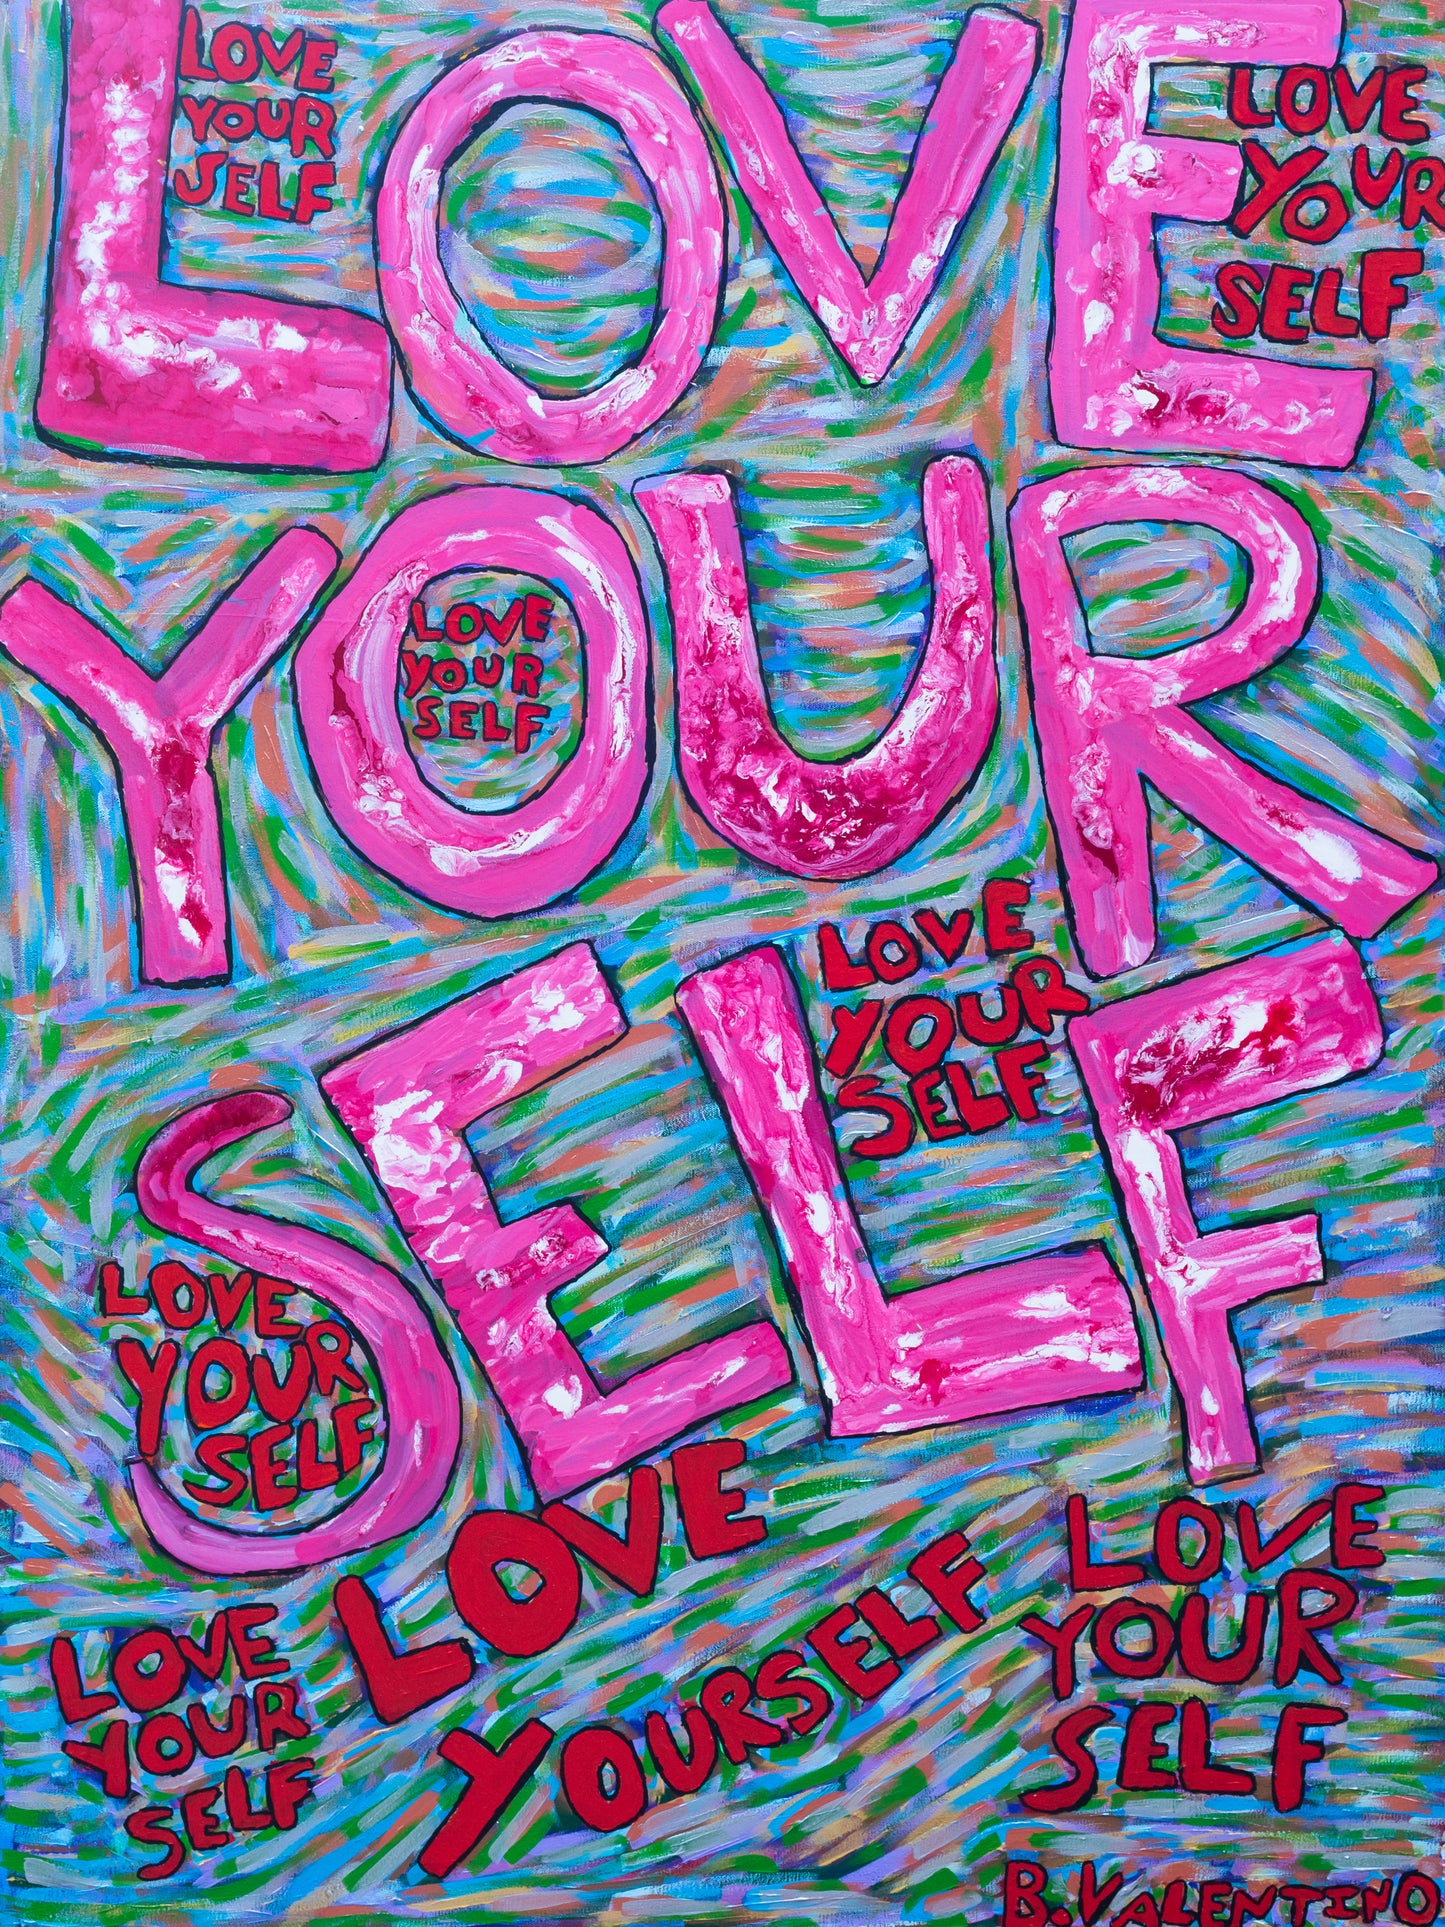 LOVE
YOUR
SELF
LOVE
YOUR
SELF
LOVE
YOUR
SELF
LOVE
YOUR
SELF
LOVE
YOUR
SELF
LOVE
YOUR
SELF
LOVE
YOURSELF
LOVE
YOUR
SELF
LOVE
YOUR
SELF
B. VALENTINO